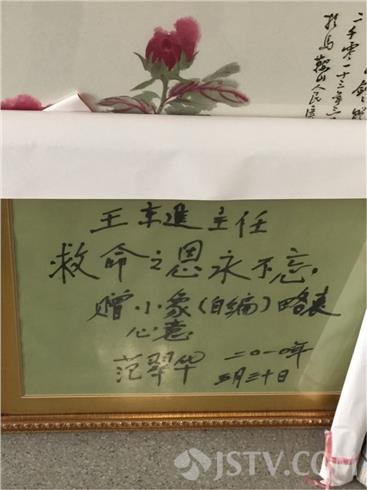 二千零一十三年三
於马鞍山人民医
王东進主任
救命之恩永不忘.
赠小象(自编)略表
心意
范翠华 二〇一〇年
三月三十日
JSTV.COM